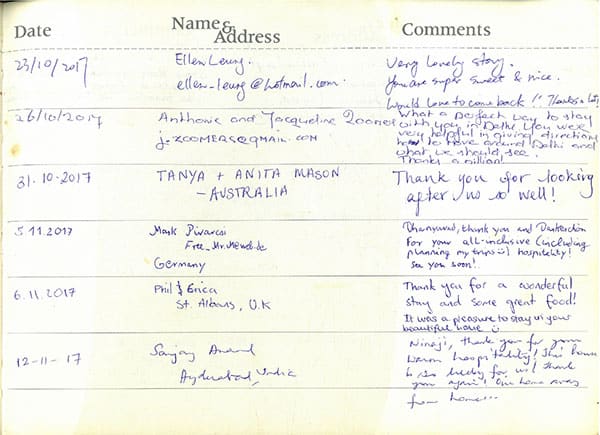 Date Name & Address Comments
23/10/2017 Ellen Leung. Very lovely stay.
ellen-leung@hotmail.com. You are super sweet & nice.
Would love to come back!! Thanks a lot
26/10/2017 Anthonie and Jacqueline What a perfect way to stay
with you in Delhi. You were
j.zoomers@gmail.com very helpful in giving directions
how to move around Delhi and
what we should see.
Thanks a million!
31.10.2017 TANYA + ANITA MASON Thank you for looking
- AUSTRALIA after us so well!
5.11.2017 Mark thank you and
For your all-inclusive (including
Germany planning my trips :) hospitality!
See you soon!
6.11.2017 Phil & Erica Thank you for a wonderful
St. Albans, U.K stay and some great food!
It was a pleasure to stay in your
beautiful home
12-11-17 Sanjay Anand thank you for your
warm hospitality! This house
Hyderabad, India is so for us! thank
you again! Our home away
from home...